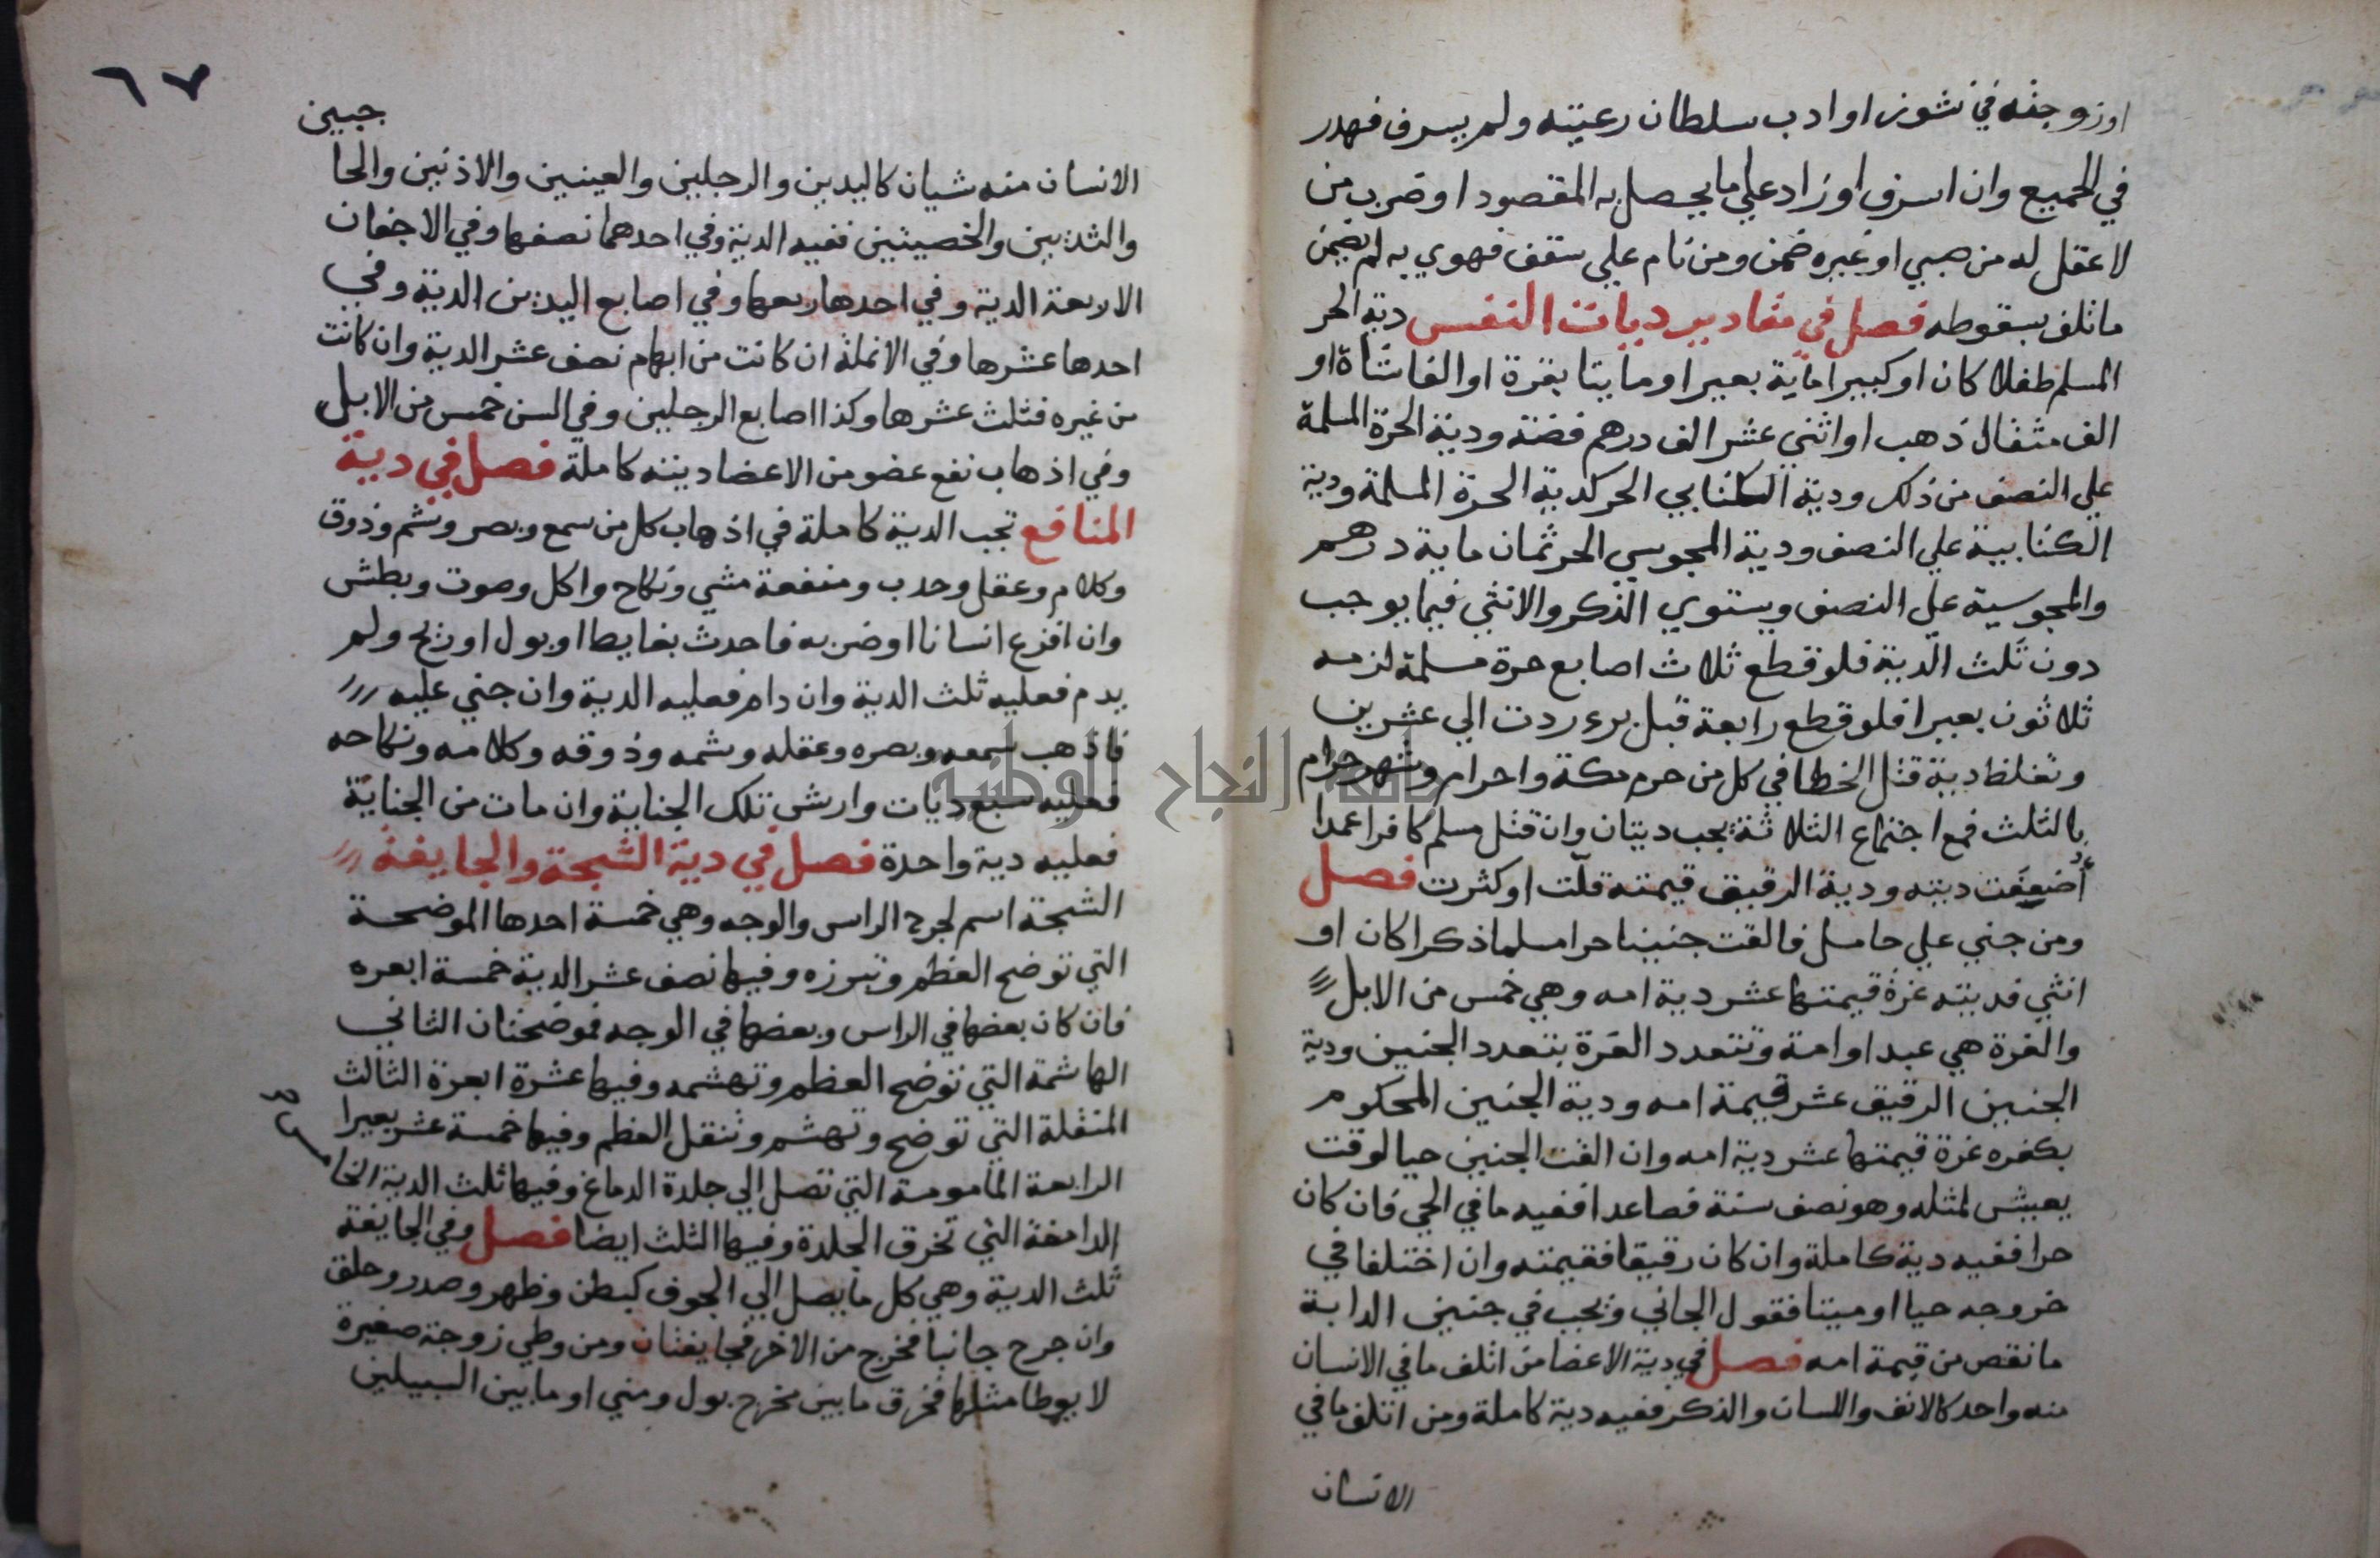 او زوجته في نشوز او ادب سلطان رعيته ولم يسرف فهدر
في الجميع وان اسرف او زاد علي ما يحصل به المقصود او ضرب من
لا عقل له من صبي او غيره ضمن ومن نام علي سقف فهوي به لم يضمن
ما تلف بسقوطه فصل في مقادير ديات النفس دية الحر
المسلم طفلا كان او كبيرا ماية بعير او مايتا بقرة او الفا شاة او
الف مثقال ذهب او اثني عشر الف درهم فضة ودية الحرة المسلمة
علي النصف من ذلك ودية الكتابي الحر كدية الحرة المسلمة ودية
الكتابية علي النصف ودية المجوسي الحر ثمان ماية درهم
والمجوسية علي النصف ويستوي الذكر والانثي فيما يوجب
دون ثلث الدية فلو قطع ثلاث اصابع حرة مسلمة لزمه
ثلاثون بعيرا فلو قطع رابعة قبل برء ردت الي عشرين
وتغلظ دية قتل الخطا في كل من حرم مكة واحرام وشهر حرام
بالثلث فمع اجتماع الثلاثة يجب ديتان وان قتل مسلم كافرا عمدا
أُضعِفَت ديته ودية الرقيق قيمته قلّت او كثرت فصل
ومن جني علي حامل فالقت جنينا حرا مسلما ذكرا كان او
انثي فديته غرة قيمتها عشر دية امه وهي خمس من الابل
والغرة هي عبد او امة وتتعدد الغرة بتعدد الجنين ودية
الجنين الرقيق عشر قيمة امه ودية الجنين المحكوم
بكفره غرة قيمتها عشر دية امه وان القت الجنين حيا لوقت
يعيش لمثله وهو نصف سنة فصاعدا ففيه ما في الحي فان كان
حرا ففيه دية كاملة وان كان رقيقا فقيمته وان اختلفا في
خروجه حيا او ميتا فقول الجاني ويجب في جنين الدابة
ما نقص من قيمة امه فصل في دية الاعضا من اتلف ما في الانسان
منه واحد كالانف واللسان والذكر ففيه دية كاملة ومن اتلف ما في
الانسان
٦٧
جبين
الانسان منه شيان كاليدين والرجلين والعينين والاذنين والحا
والثديين والخصيتين ففيه الدية وفي احدهما نصفها وفي الاجفان
الاربعة الدية وفي احدها ربعها وفي اصابع اليدين الدية وفي
احدها عشرها وفي الانملة ان كانت من ابهام نصف عشر الدية وان كانت
من غيره فثلث عشرها وكذا اصابع الرجلين وفي السن خمس من الابل
وفي اذهاب نفع عضو من الاعضا ديته كاملة فصل في دية
المنافع تجب الدية كاملة في اذهاب كل من سمع وبصر وشم وذوق
وكلام وعقل وحدب ومنفعة مشي ونكاح واكل وصوت وبطش
وان افزع انسانا او ضربه فاحدث بغايط او بول او ريح ولم
يدم فعليه ثلث الدية وان دام فعليه الدية وان جني عليه
فاذهب سمعه وبصره وعقله وشمه وذوقه وكلامه ونكاحه
فعليه سبع ديات وارش تلك الجناية وان مات من الجناية
فعليه دية واحدة فصل في دية الشجة والجايفة
الشجة اسم لجرح الراس والوجه وهي خمسة احدها الموضحة
التي توضح العظم وتبرزه وفيها نصف عشر الدية خمسة ابعره
فان كان بعضها في الراس وبعضها في الوجه فموضحتان الثاني
الهاشمة التي توضح العظم وتهشمه وفيها عشرة ابعرة الثالث
المنقلة التي توضح وتهشم وتنقل العظم وفيها خمسة عشر بعيرا
الرابعة المأمومة التي تصل الي جلدة الدماغ وفيها ثلث الدية الخا
مس
الدامغة التي تخرق الجلدة وفيها الثلث ايضا فصل وفي الجايفة
ثلث الدية وهي كل ما يصل الي الجوف كبطن وظهر وصدر وحلق
وان جرح جانبا فخرج من الاخر فجايفتان ومن وطي زوجة صغيرة
لا يوطا مثلها فخرق ما بين مخرج بول ومني او ما بين السبيلين
جامعة النجاح الوطنية